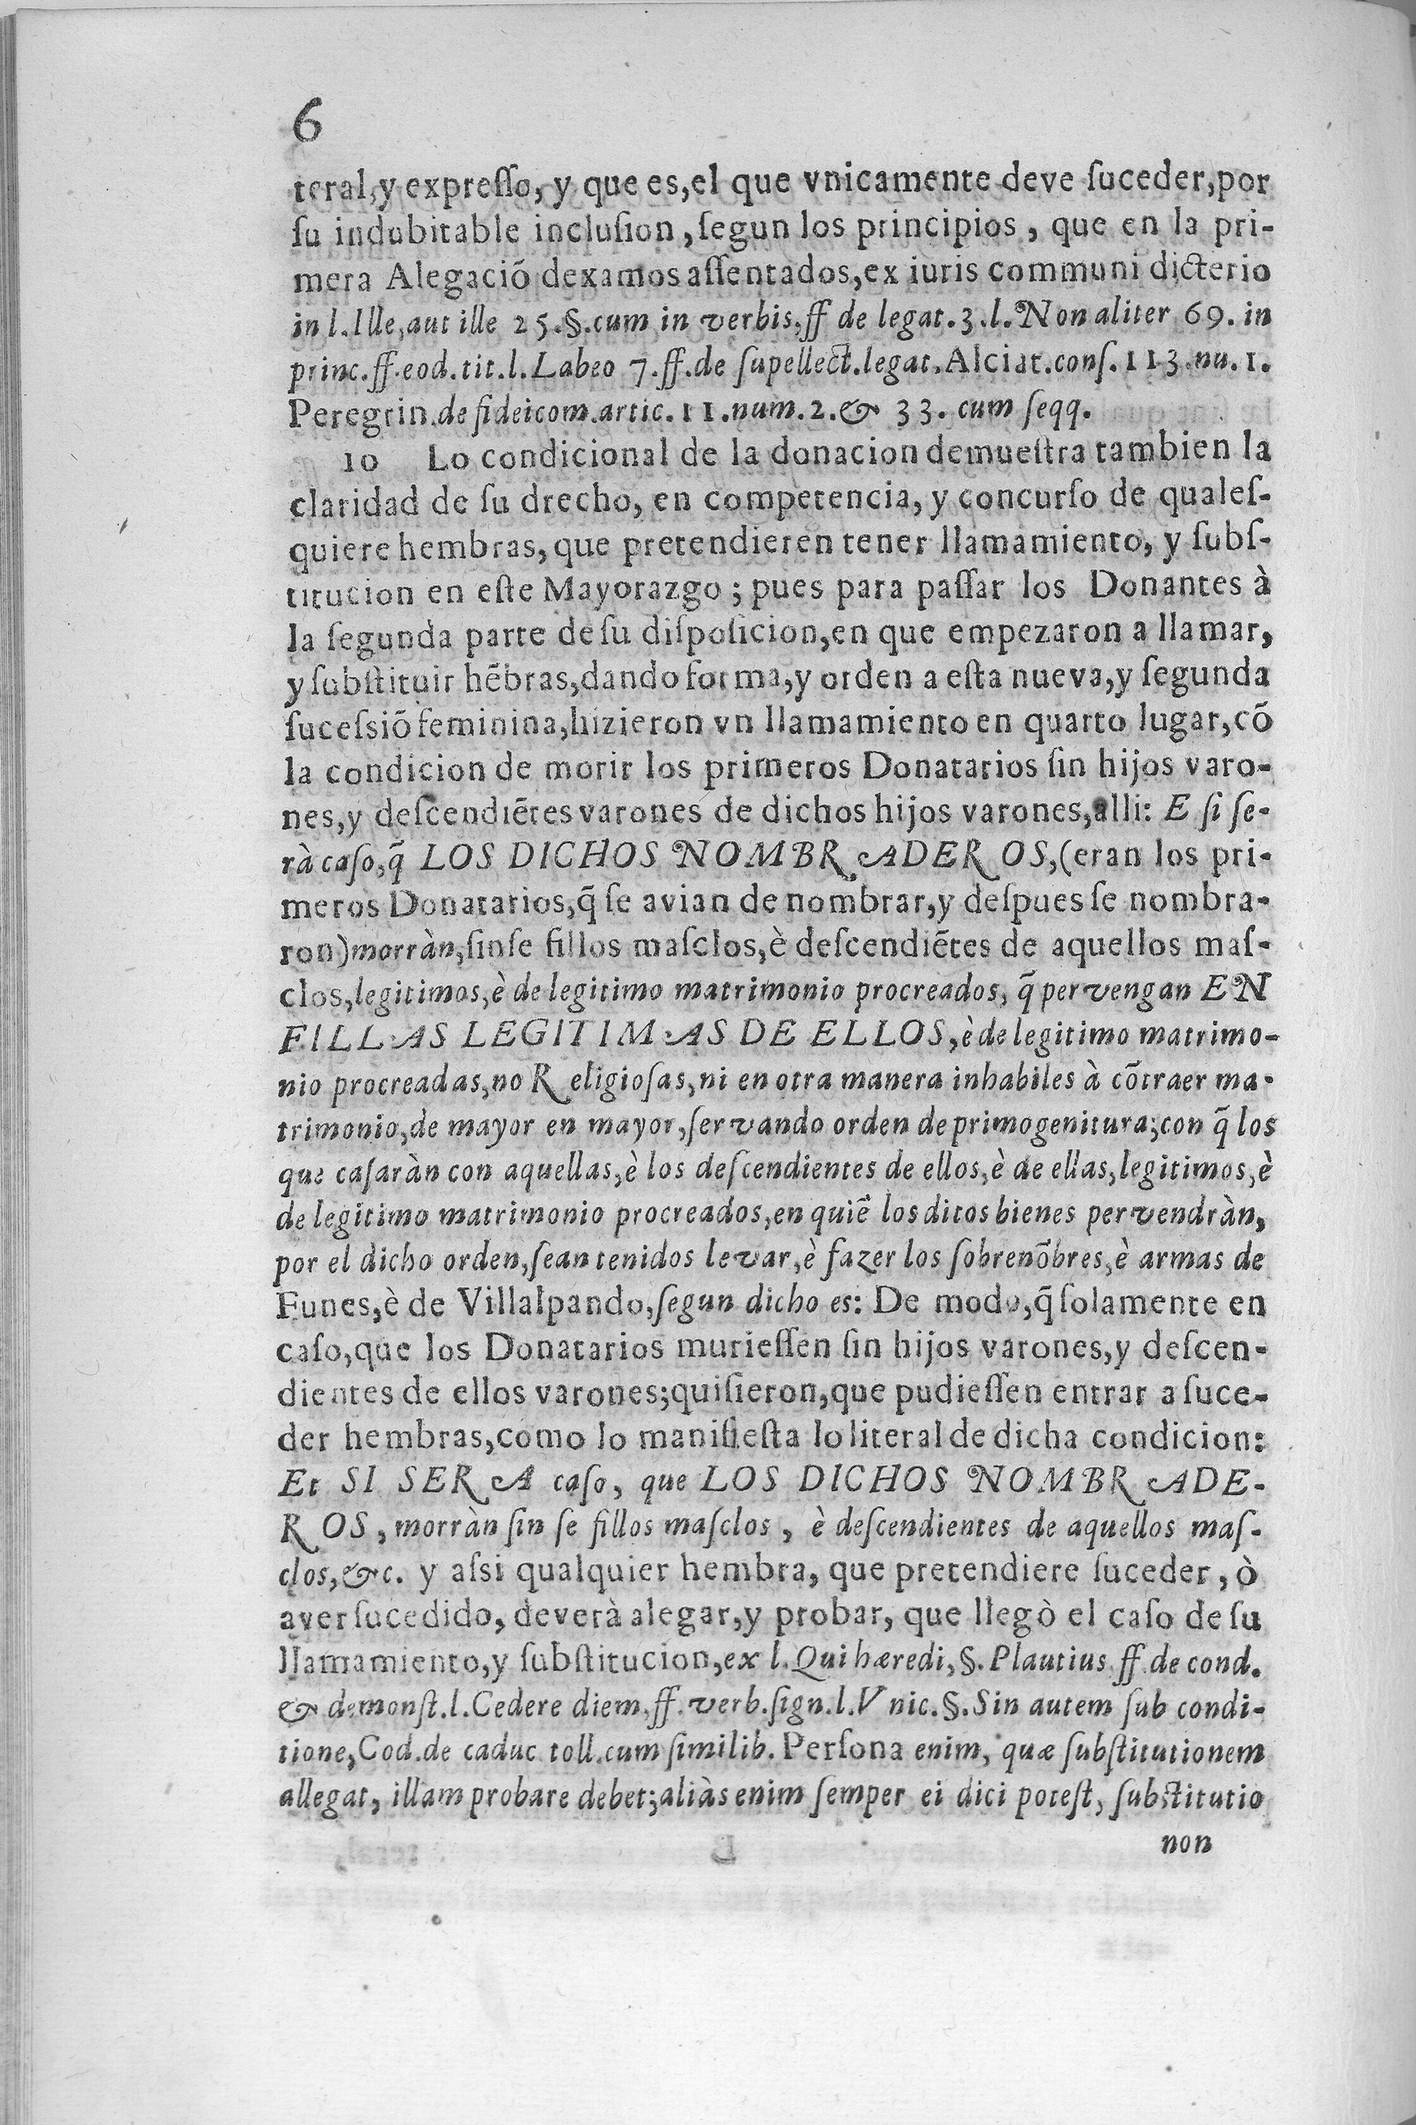 6
teral, y expresso, y que es, el que vnicamente deve suceder, por
su indubitable inclusion, segun los principios, que en la pri-
mera Alegaciõ dexamos assentados, ex iuris communi dicterio
in l. Ille, aut ille 25. §. cum in verbis, ff de legat. 3. l. Non aliter 69. in
princ. ff. eod. tit. l. Labeo 7. ff. de supellect. legat. Alciat. cons. 113. nu. 1.
Peregrin. de fideicom. artic. 11. num. 2. & 33. cum seqq.
10 Lo condicional de la donacion demuestra tambien la
claridad de su drecho, en competencia, y concurso de quales-
quiere hembras, que pretendieren tener llamamiento, y subs-
titucion en este Mayorazgo; pues para passar los Donantes à
la segunda parte de su disposicion, en que empezaron a llamar,
y substituir hẽbras, dando forma, y orden a esta nueva, y segunda
sucessiõ feminina, hizieron vn llamamiento en quarto lugar, cõ
la condicion de morir los primeros Donatarios sin hijos varo-
nes, y descendiẽtes varones de dichos hijos varones, alli: E si se-
rà caso, q̃ LOS DICHOS NOMBRADEROS, (eran los pri-
meros Donatarios, q̃ se avian de nombrar, y despues se nombra-
ron) morràn, sinse fillos masclos, è descendiẽtes de aquellos mas-
clos, legitimos, è de legitimo matrimonio procreados, q̃ pervengan EN
FILLAS LEGITIMAS DE ELLOS, è de legitimo matrimo-
nio procreadas, no Religiosas, ni en otra manera inhabiles à cõtraer ma-
trimonio, de mayor en mayor, servando orden de primogenitura; con q̃ los
que casaràn con aquellas, è los descendientes de ellos, è de ellas, legitimos, è
de legitimo matrimonio procreados, en quiẽ los ditos bienes pervendràn,
por el dicho orden, sean tenidos levar, è fazer los sobrenõbres, è armas de
Funes, è de Villalpando, segun dicho es: De modo, q̃ solamente en
caso, que los Donatarios muriessen sin hijos varones, y descen-
dientes de ellos varones; quisieron, que pudiessen entrar a suce-
der hembras, como lo manifiesta lo literal de dicha condicion:
Et SI SERA caso, que LOS DICHOS NOMBRADE-
ROS, morràn sin se fillos masclos, è descendientes de aquellos mas-
clos, &c. y assi qualquier hembra, que pretendiere suceder, ò
aver sucedido, deverà alegar, y probar, que llegò el caso de su
llamamiento, y substitucion, ex l. Qui hæredi, §. Plautius ff. de cond.
& demonst. l. Cedere diem, ff. verb. sign. l. Vnic. §. Sin autem sub condi-
tione, Cod. de caduc toll. cum similib. Persona enim, quæ substitutionem
allegat, illam probare debet; aliàs enim semper ei dici potest, substitutio
non